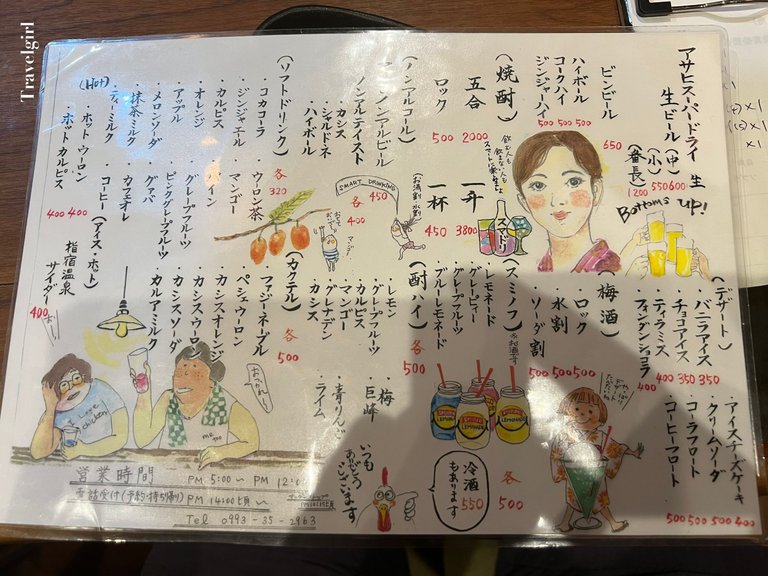 Travelgirl
アサヒスーパードライ 生
生ビール(中) 600
(小) 550
(番長) 1200
ビンビール 650
ハイボール 500
コークハイ 500
ジンジャーハイ 500
Bottoms UP!
(焼酎)
五合 2000
ロック 500
一升 3800
一杯 450
飲む人も
飲まない人も
スマドリ
(ノンアルコール)
・ノンアルビール 450
ノンアルテイスト
・カシス
・シャルドネ
・ハイボール
各400
SMART DRINKING
(お酒割 水割)
(ソフトドリンク)
各320
・コカコーラ
・ジンジャエール
・カルピス
・オレンジ
・アップル
・メロンソーダ
・抹茶ミルク
・ティーミルク
・ウーロン茶
・マンゴー
・パイン
・グレープフルーツ
・ピンクグレープフルーツ
・グァバ
・カフェオレ
・コーヒー(アイス・ホット)
(Hot)
・ホットウーロン 400
・ホットカルピス 400
指宿温泉
サイダー 400
(デザート)
・バニラアイス 350
・チョコアイス 350
・ティラミス 400
・フォンダンショコラ 400
・アイスチーズケーキ 400
・クリームソーダ 500
・コーラフロート 500
・コーヒーフロート 500
(梅酒)
・ロック 500
・水割 500
・ソーダ割 500
(スミノフ)
・レモネード
・グレーピィー
・グレープフルーツ
・ブルーレモネード
各500
(酎ハイ)
各500
・レモン
・グレープフルーツ
・カルピス
・マンゴー
・グレナデン
・カシス
・梅
・巨峰
・青りんご
・ライム
(カクテル)
各500
・ファジーネーブル
・ペシェウーロン
・カシスオレンジ
・カシスウーロン
・カシスソーダ
・カルアミルク
冷酒
もあります
550
いつも
ありがとう
ございます
おつかれー
I Love
chicken
営業時間 PM 5:00～ PM 12:0
電話受付(予約・持ち帰り) PM 14:00頃～
Tel 0993-35-2963